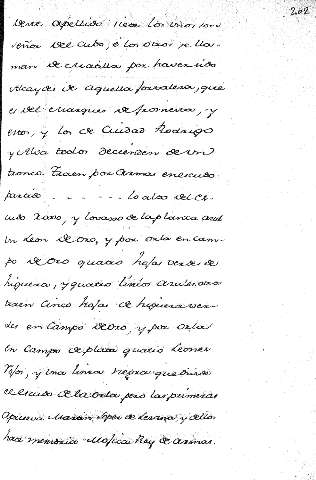 202
deste apellido: sean los unos se-
ñores del Cubo, é los otros se lla-
man de Matilla por haver sido
Alcaydes de aquella fortaleza, que
es del Marques de Fromesta, y
estos, y los de Ciudad Rodrigo
y Alva todos decienden de un
tronco. Traen por Armas en escudo
partido - - - - - - lo alto del es-
cudo Roxo, y lo vaxo de la planta azul
un Leon de oro, y por orla en cam-
po de oro quatro hojas verdes de
higuera, y quatro lirios azules otros
traen cinco hojas de higuera ver-
des en Campo de oro, y por orla
en Campo de plata quatro Leones
Rojos, y una linea negra que divide
el escudo de la orla pero las primeras
aprueva Martin Lopez de Lezana, y dellos
hace memoria Mosica Rey de armas.